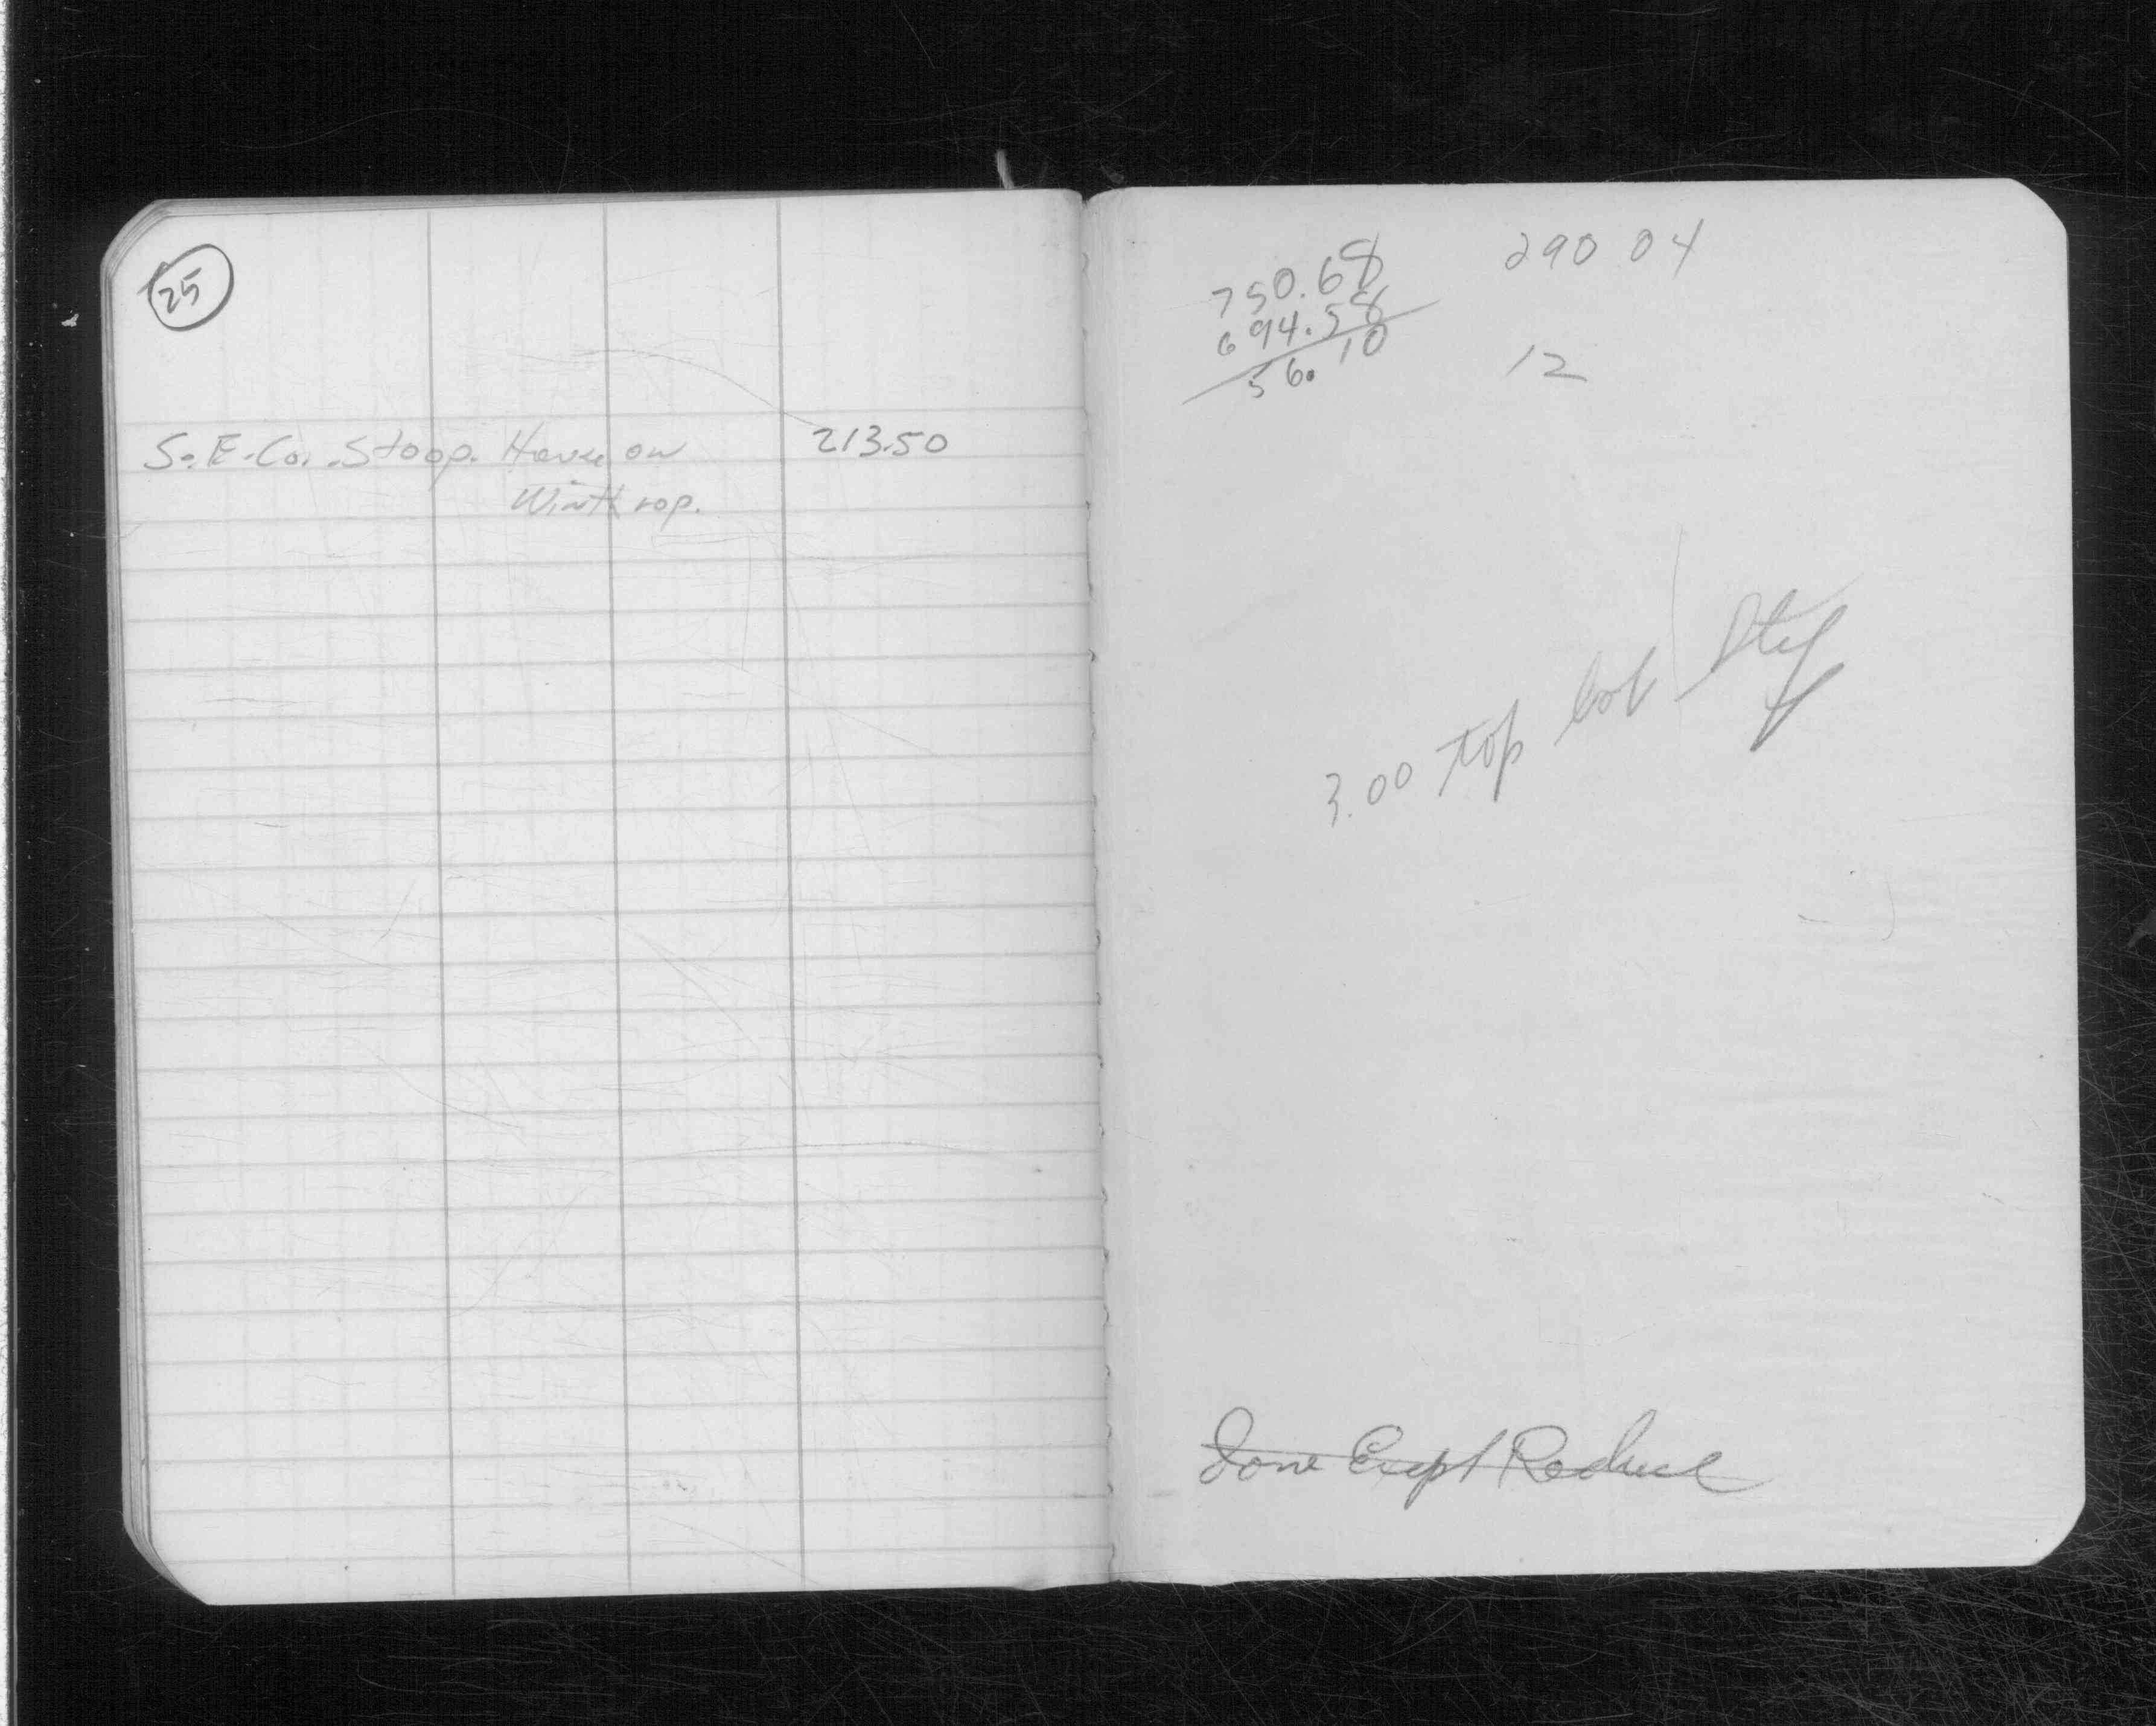 25
S. E. Co. Stoop. House on 213.50
Winthrop.
750.68 290 04
694.58
56.10 12
3.00 top
Done Except Reduce